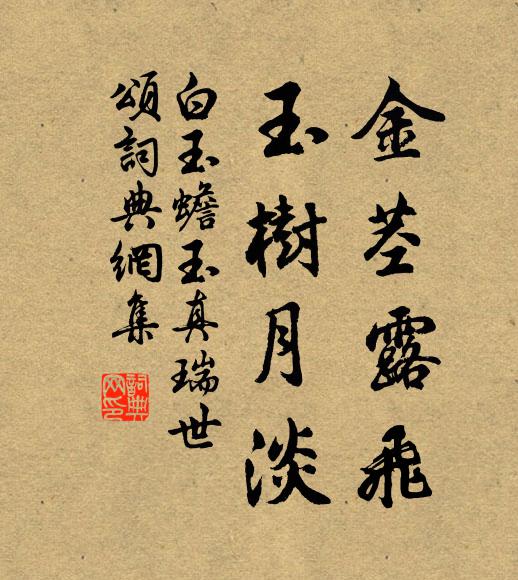 金茎露飛
玉樹月淡
白玉蟾玉真瑞世
頌詞典網集
詞典网印